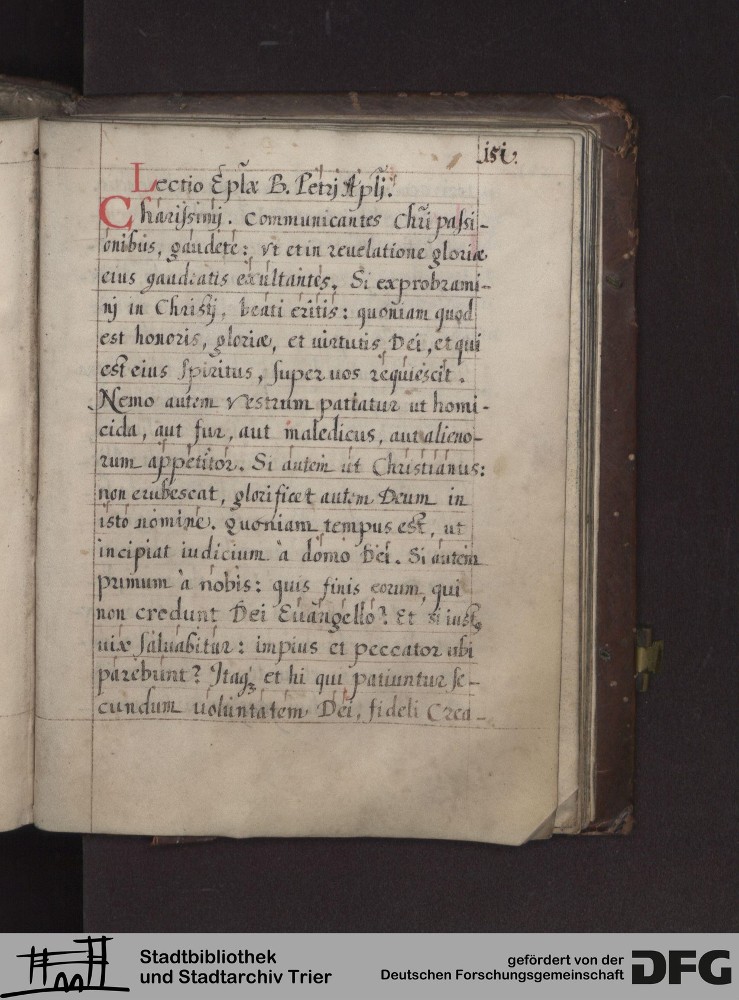 151.
Lectio Eplæ B. Petrj Aplj.
Charissimj. Communicantes Chri passi-
onibus, gaudete: vt et in reuelatione gloriæ
eius gaudeatis exultantes. Si exprobrami-
nj in Christj, beati eritis: quoniam quod
est honoris, gloriæ, et uirtutis Dei, et qui
est eius Spiritus, super uos requiescit.
Nemo autem vestrum patiatur ut homi-
cida, aut fur, aut maledicus, aut alieno-
rum appetitor. Si autem ut Christianus:
non erubescat, glorificet autem Deum in
isto nomine. quoniam tempus est, ut
incipiat iudicium à domo Dei. Si autem
primum à nobis: quis finis eorum, qui
non credunt Dei Euangelio? Et si iustꝯ
uix saluabitur: impius et peccator ubi
parebunt? Itaqꝫ et hi qui patiuntur se-
cundum uoluntatem Dei, fideli Crea-
Stadtbibliothek
und Stadtarchiv Trier
gefördert von der
Deutschen Forschungsgemeinschaft
DFG